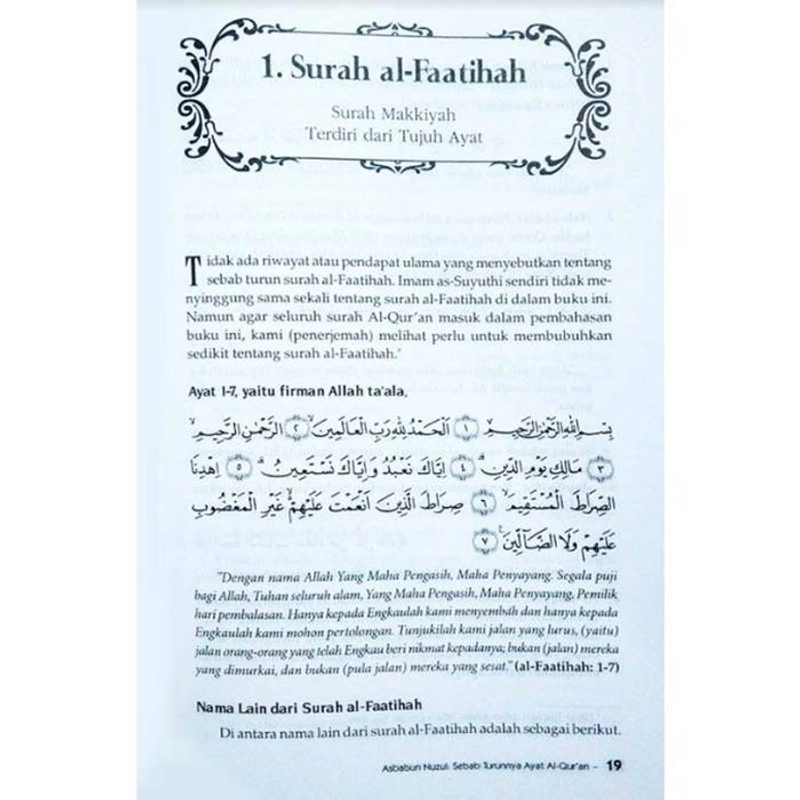 1. Surah al-Faatihah
Surah Makkiyah
Terdiri dari Tujuh Ayat
Tidak ada riwayat atau pendapat ulama yang menyebutkan tentang
sebab turun surah al-Faatihah. Imam as-Suyuthi sendiri tidak me-
nyinggung sama sekali tentang surah al-Faatihah di dalam buku ini.
Namun agar seluruh surah Al-Qur'an masuk dalam pembahasan
buku ini, kami (penerjemah) melihat perlu untuk membubuhkan
sedikit tentang surah al-Faatihah.*
Ayat 1-7, yaitu firman Allah ta'ala,
بِسْمِ اللّٰهِ الرَّحْمٰنِ الرَّحِيْمِ ١ اَلْحَمْدُ لِلّٰهِ رَبِّ الْعَالَمِيْنَۙ ٢ الرَّحْمٰنِ الرَّحِيْمِۙ
٣ مَالِكِ يَوْمِ الدِّيْنِۗ ٤ اِيَّاكَ نَعْبُدُ وَاِيَّاكَ نَسْتَعِيْنُۗ ٥ اِهْدِنَا
الصِّرَاطَ الْمُسْتَقِيْمَۙ ٦ صِرَاطَ الَّذِيْنَ اَنْعَمْتَ عَلَيْهِمْۙ غَيْرِ الْمَغْضُوْبِ
عَلَيْهِمْ وَلَا الضَّاۤلِّيْنَ ٧
"Dengan nama Allah Yang Maha Pengasih, Maha Penyayang. Segala puji
bagi Allah, Tuhan seluruh alam, Yang Maha Pengasih, Maha Penyayang, Pemilik
hari pembalasan. Hanya kepada Engkaulah kami menyembah dan hanya kepada
Engkaulah kami mohon pertolongan. Tunjukilah kami jalan yang lurus, (yaitu)
jalan orang-orang yang telah Engkau beri nikmat kepadanya; bukan (jalan) mereka
yang dimurkai, dan bukan (pula jalan) mereka yang sesat." (al-Faatihah: 1-7)
Nama Lain dari Surah al-Faatihah
Di antara nama lain dari surah al-Faatihah adalah sebagai berikut.
Asbabun Nuzul: Sebab Turunnya Ayat Al-Qur'an – 19